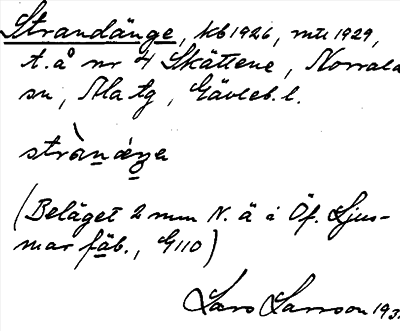 Strandänge, kb 1926, mtl 1929,
t. å nr 4 Skättene, Norrala
sn, Ala tg, Gävleb. l.
stràn ǽŋa
(Beläget 2 mm N. ä i Öf. Ljus-
mar fäb., G110)
Lars Larsson 193